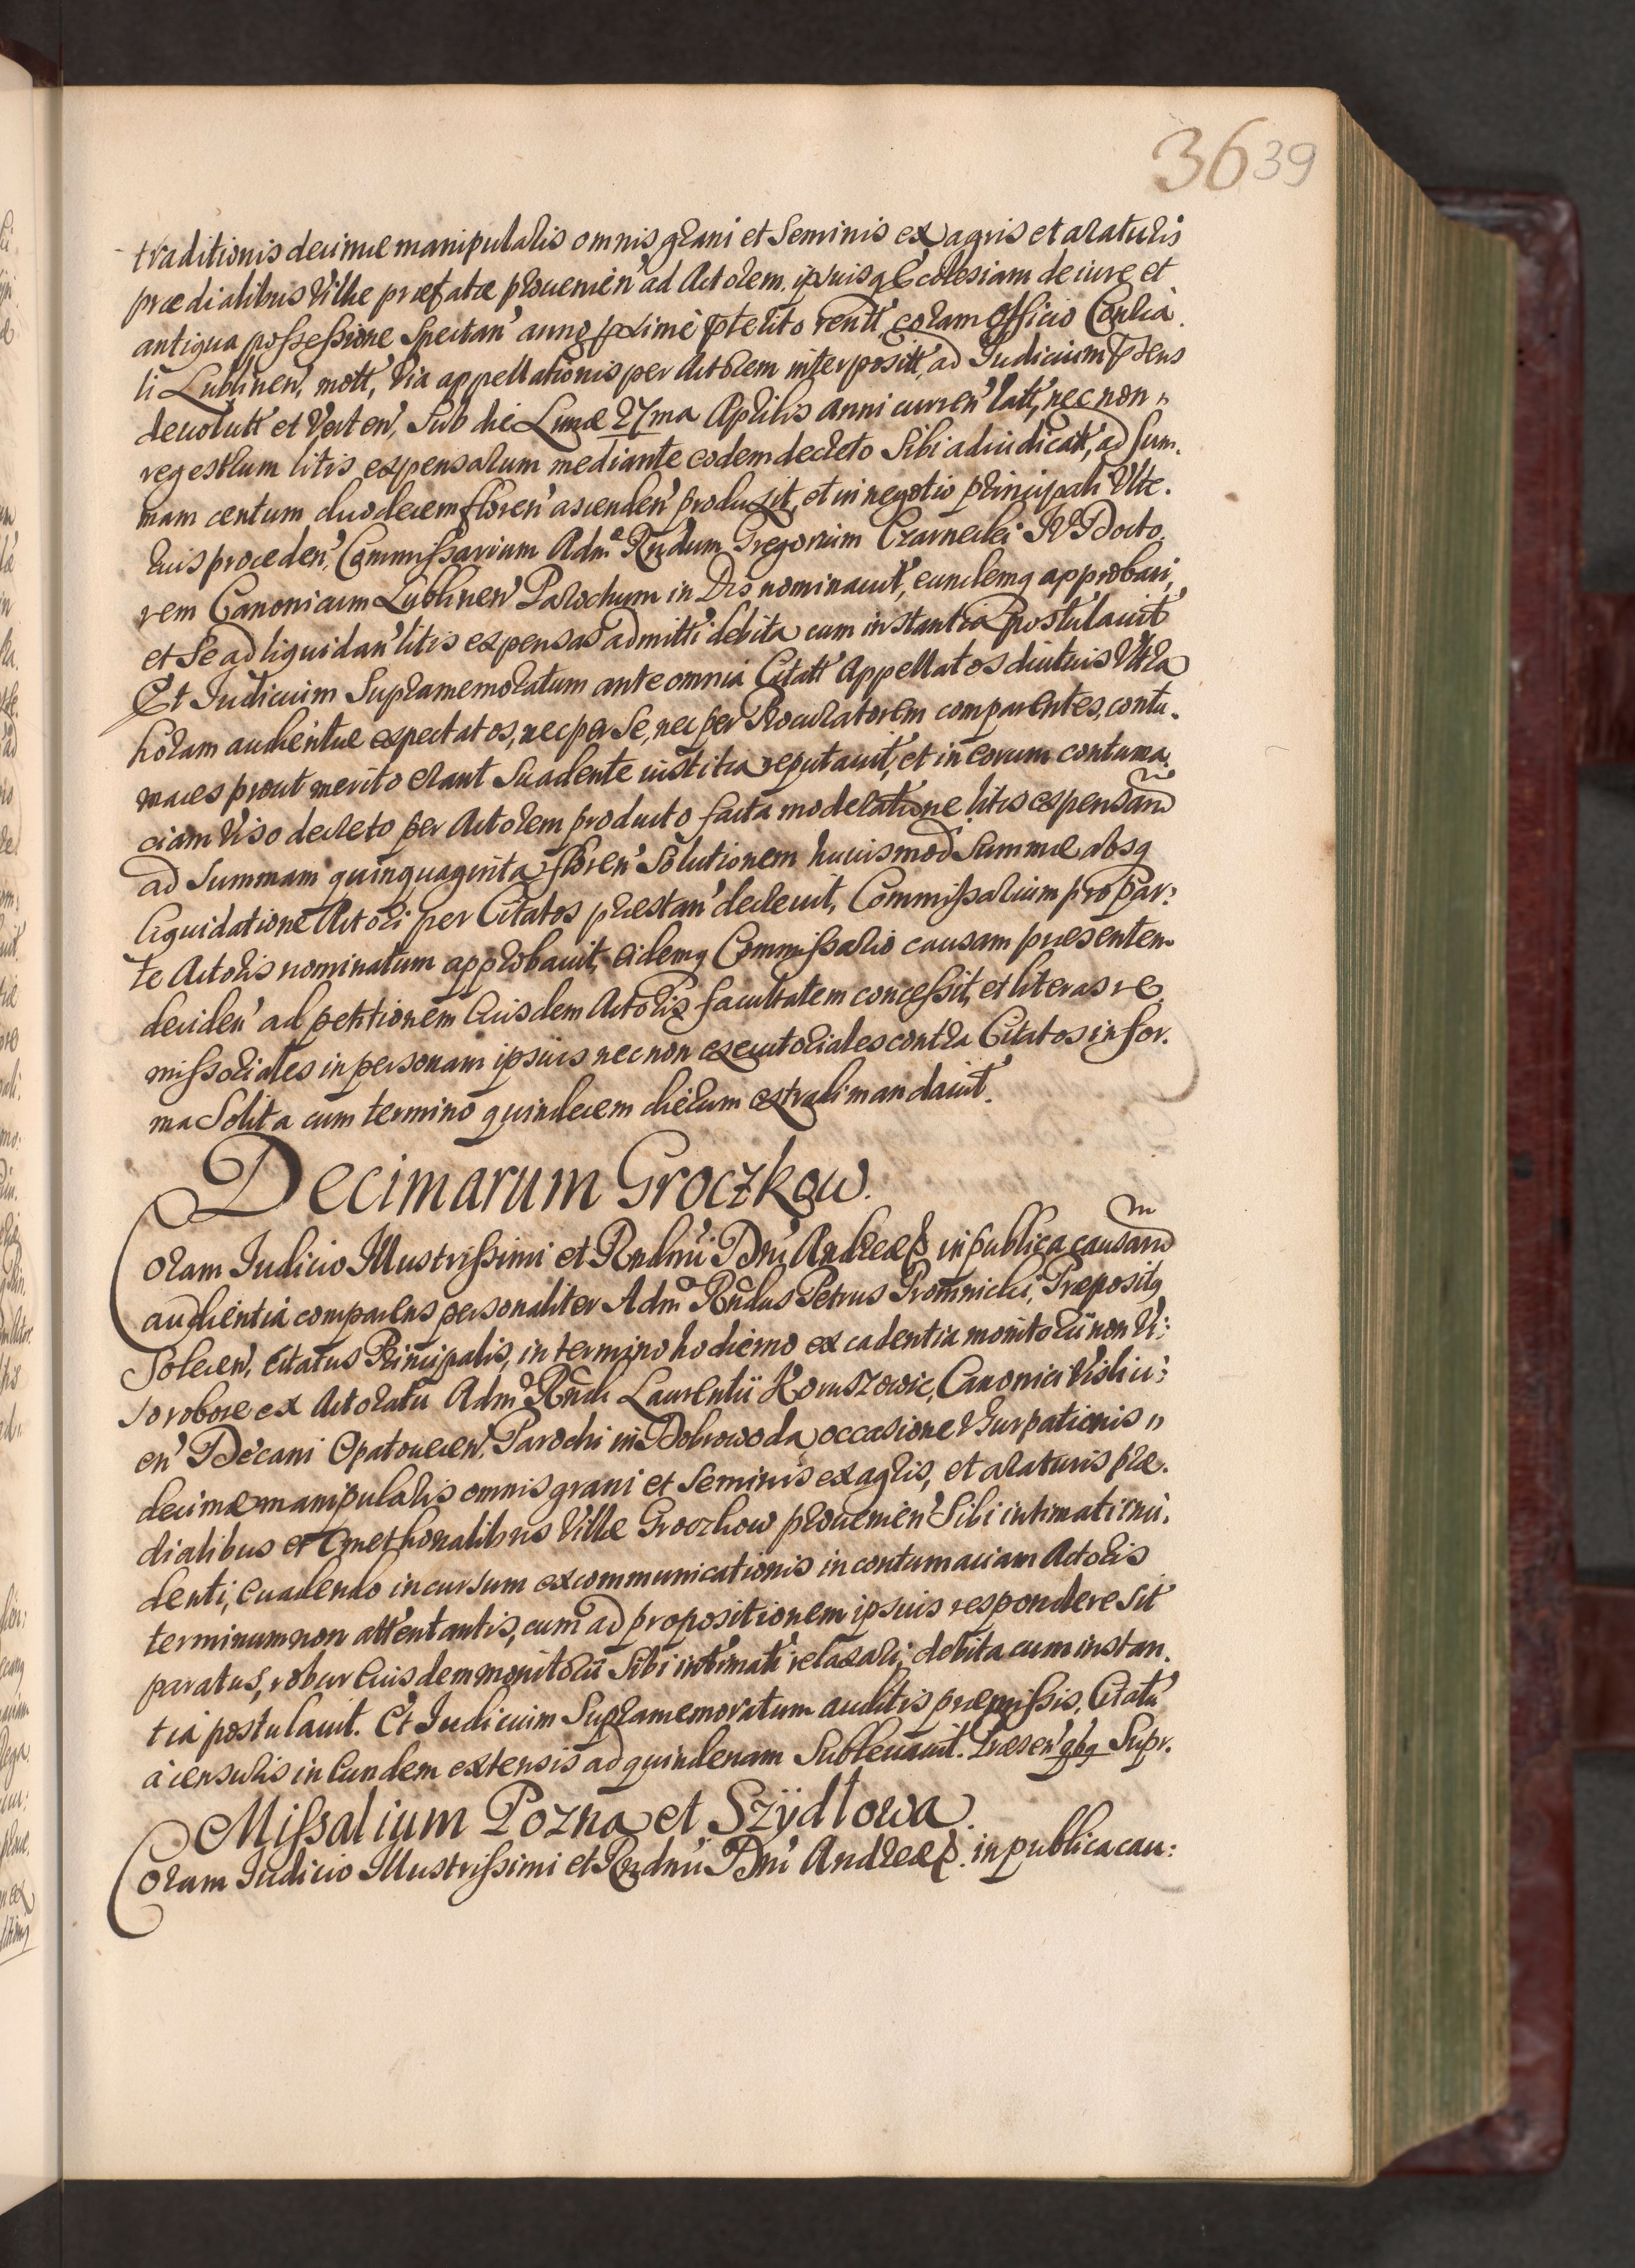 36 39
traditionis decimae manipularis omnis grani et Seminis ex agris et araturis
praedialibus Villae praefatae prouenien' ad Actorem, ipsiusq Ecclesiam de iure et
antiqua possessione Spectan' anno proxime pterito rentt, coram officio Consia
li Lublinen', mott, Via appellationis per Actorem interpositt, ad Iudicium psens
deuolutt et Verten', Sub die Lunae 27ma Aprilis anni curren' latt, nec non
regestrum litis expensarum mediante eodem decreto Sibi adiudicatt, ad Sum.
mam centum duodecem floren' ascenden' produxit, et in negotio principali Vlte.
rius proceden', Commissarium Admº Rndum Gregorium Czarnecki IV Docto.
rem Canonicum Lublinen' Parochum in Dis nominauit, eundemq approbari,
et Se ad liquidan' litis expensas admitti debita cum instantia postulauit
Et Iudicium Supramemoratum ante omnia Citatt Appellatos diutius Vltra
horam audientiae expectatos, nec per Se, nec per Procuratorem comparentes, contu.
maces prout merito erant Suadente iustitia reputauit, et in eorum contuma.
ciam Viso decreto per Actorem producto facta moderatione litis expensarum
ad Summam quinquaginta floren' Solutionem huiusmod Summae absq
liquidatione Actori per Citatos praestan' decreuit, Commissarium pro par:
te Actoris nominatum approbauit, eidemq Commissario causam praesentem
deciden' ad petitionem Eiusdem Actoris facultatem concessit, et literas re
missoriales in personam ipsius nec non executoriales contra Citatos in for.
ma Solita cum termino quindecem dierum extradi mandauit.
Decimarum Groczkow.
Coram Iudicio Illustrissimi et Rndmi Dni Andreae p in publica causarum
audientia comparens personaliter Admº Rndus Petrus Promnicki, Praepositq
Solecen', Citatus Principalis, in termino hodierno ex cadentia monitorii non Vi:
so robore ex Actoratu Admº Rndi Laurentii Koruszowic, Canonici Vislici:
en' Decani Opatouecen', Parochi in Dobrowoda, occasione Vsurpationis
decimae manipularis omnis grani et Seminis ex agris, et araturis prae.
dialibus et Cmethonalibus Villae Groczkow prouenien' Sibi intimati inci.
denti, Euadendo incursum excommunicationis in contumaciam Actoris
terminum non attentantis, cum ad propositionem ipsius respondere Sit
paratus, robur Eiusdem monitorii Sibi intimati relaxari, debita cum instan.
tia postulauit. Et Iudicium Supramemoratum auditis praemissis, Citatu
a censuris in Eundem extensis ad quindenam Subleuauit. Praesen' qbq Supr.
Missalium Pozna et Szÿdłowa.
Coram Iudicio Illustrissimi et Rndmi Dni Andreae p. in publica cau: